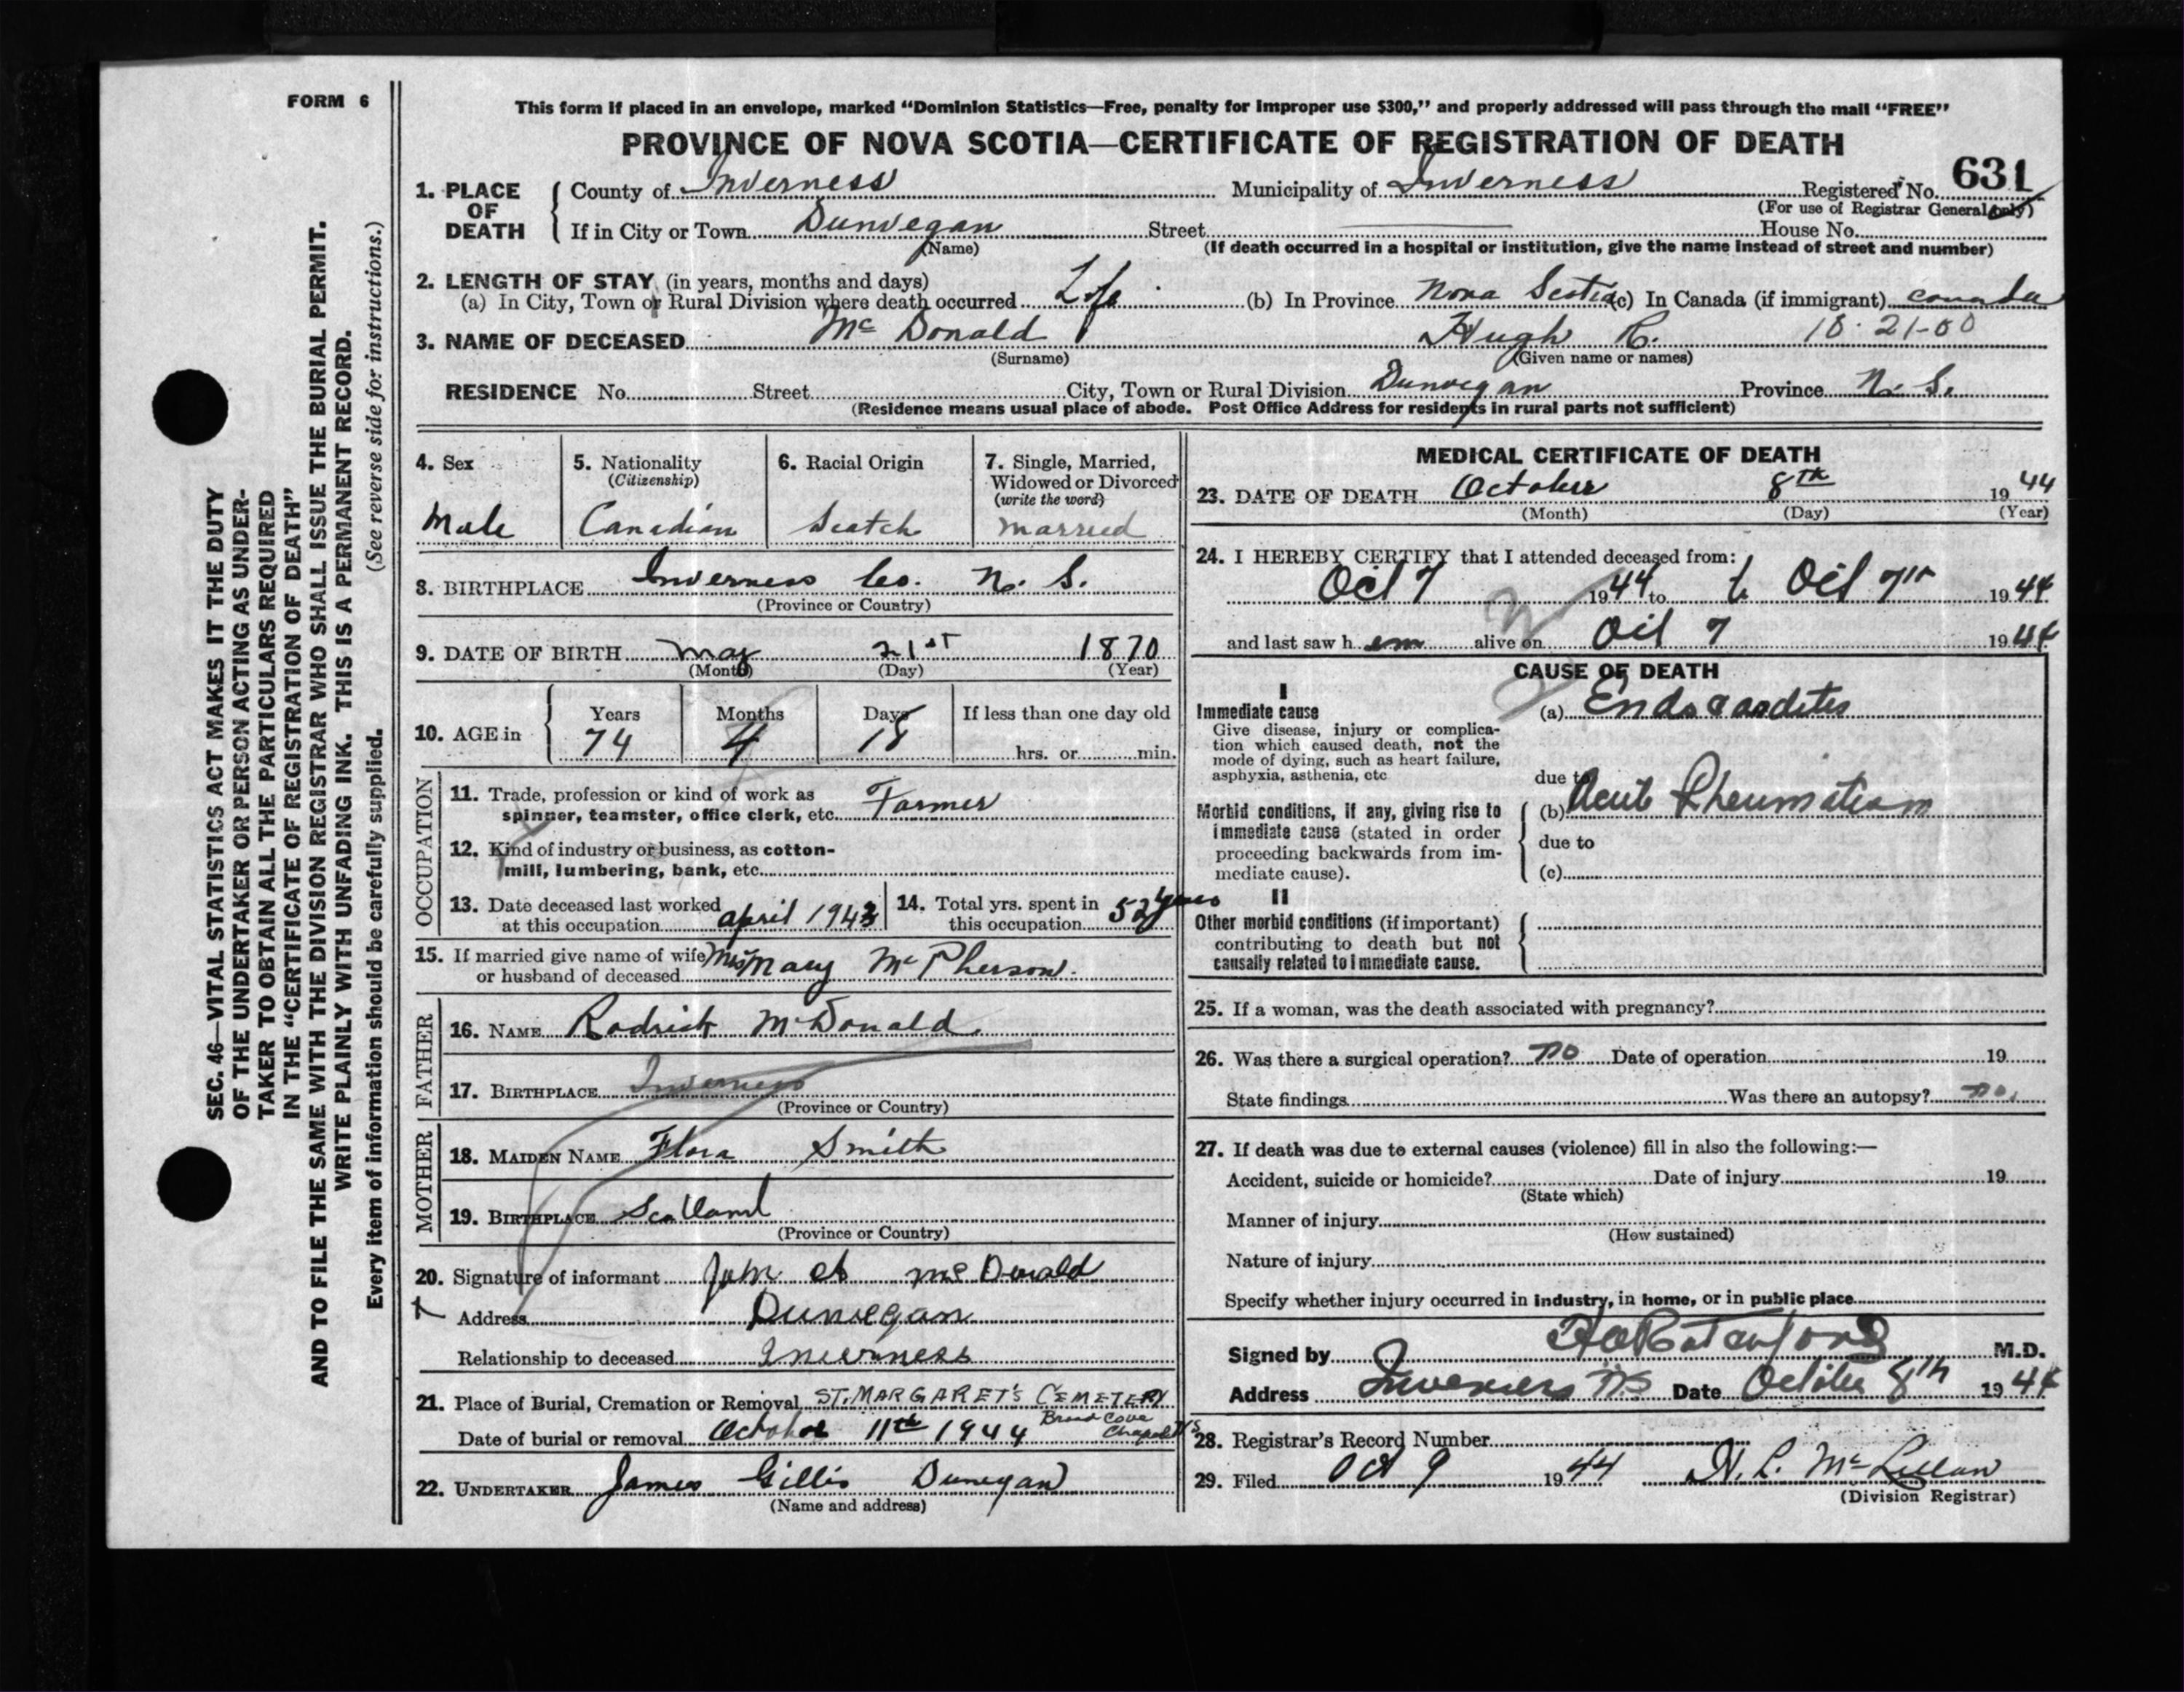 FORM 6
SEC. 46—VITAL STATISTICS ACT MAKES IT THE DUTY
OF THE UNDERTAKER OR PERSON ACTING AS UNDER-
TAKER TO OBTAIN ALL THE PARTICULARS REQUIRED
IN THE "CERTIFICATE OF REGISTRATION OF DEATH"
AND TO FILE THE SAME WITH THE DIVISION REGISTRAR WHO SHALL ISSUE THE BURIAL PERMIT.
WRITE PLAINLY WITH UNFADING INK. THIS IS A PERMANENT RECORD.
Every item of information should be carefully supplied. (See reverse side for instructions.)
This form if placed in an envelope, marked "Dominion Statistics—Free, penalty for improper use $300," and properly addressed will pass through the mail "FREE"
PROVINCE OF NOVA SCOTIA—CERTIFICATE OF REGISTRATION OF DEATH
1. PLACE OF DEATH
County of Inverness Municipality of Inverness Registered No. 631
(For use of Registrar General only)
If in City or Town Dunvegan Street House No.
(Name) (If death occurred in a hospital or institution, give the name instead of street and number)
2. LENGTH OF STAY (in years, months and days)
(a) In City, Town or Rural Division where death occurred Life (b) In Province Nova Scotia (c) In Canada (if immigrant) Canada
3. NAME OF DECEASED Mc Donald Hugh R. 18-21-00
(Surname) (Given name or names)
RESIDENCE No. Street City, Town or Rural Division Dunvegan Province N. S.
(Residence means usual place of abode. Post Office Address for residents in rural parts not sufficient)
4. Sex
Male
5. Nationality
(Citizenship)
Canadian
6. Racial Origin
Scotch
7. Single, Married,
Widowed or Divorced
(write the word)
married
8. BIRTHPLACE Inverness Co. N. S.
(Province or Country)
9. DATE OF BIRTH May 21st 1870
(Month) (Day) (Year)
10. AGE in Years Months Days If less than one day old
74 4 18 hrs. or min.
OCCUPATION
11. Trade, profession or kind of work as
spinner, teamster, office clerk, etc. Farmer
12. Kind of industry or business, as cotton-
mill, lumbering, bank, etc.
13. Date deceased last worked
at this occupation april 1943
14. Total yrs. spent in
this occupation 52 years
15. If married give name of wife
or husband of deceased Mrs Mary McPherson.
FATHER
16. NAME Rodrick McDonald.
17. BIRTHPLACE Inverness
(Province or Country)
MOTHER
18. MAIDEN NAME Flora Smith
19. BIRTHPLACE Scotland
(Province or Country)
20. Signature of informant John A McDonald
Address Dunvegan
Relationship to deceased Inverness
21. Place of Burial, Cremation or Removal ST. MARGARET'S CEMETERY
Broad Cove
Chapel N.S
Date of burial or removal October 11th 1944
22. UNDERTAKER James Gillis Dunvegan
(Name and address)
MEDICAL CERTIFICATE OF DEATH
23. DATE OF DEATH October 8th 1944
(Month) (Day) (Year)
24. I HEREBY CERTIFY that I attended deceased from:
Oct 7 1944 to Oct 7th 1944
and last saw him alive on Oct 7 1944
CAUSE OF DEATH
I
Immediate cause
Give disease, injury or complica-
tion which caused death, not the
mode of dying, such as heart failure,
asphyxia, asthenia, etc
(a) Endocarditis
due to
Morbid conditions, if any, giving rise to
immediate cause (stated in order
proceeding backwards from im-
mediate cause).
(b) Acute Rheumatism
due to
(c)
II
Other morbid conditions (if important)
contributing to death but not
causally related to immediate cause.
25. If a woman, was the death associated with pregnancy?
26. Was there a surgical operation? no Date of operation 19
State findings Was there an autopsy? no.
27. If death was due to external causes (violence) fill in also the following:—
Accident, suicide or homicide? Date of injury 19
(State which)
Manner of injury
(How sustained)
Nature of injury
Specify whether injury occurred in industry, in home, or in public place
Signed by M.D.
Address Inverness N.S Date October 8th 1944
28. Registrar's Record Number
29. Filed Oct 9 1944 McLellan
(Division Registrar)